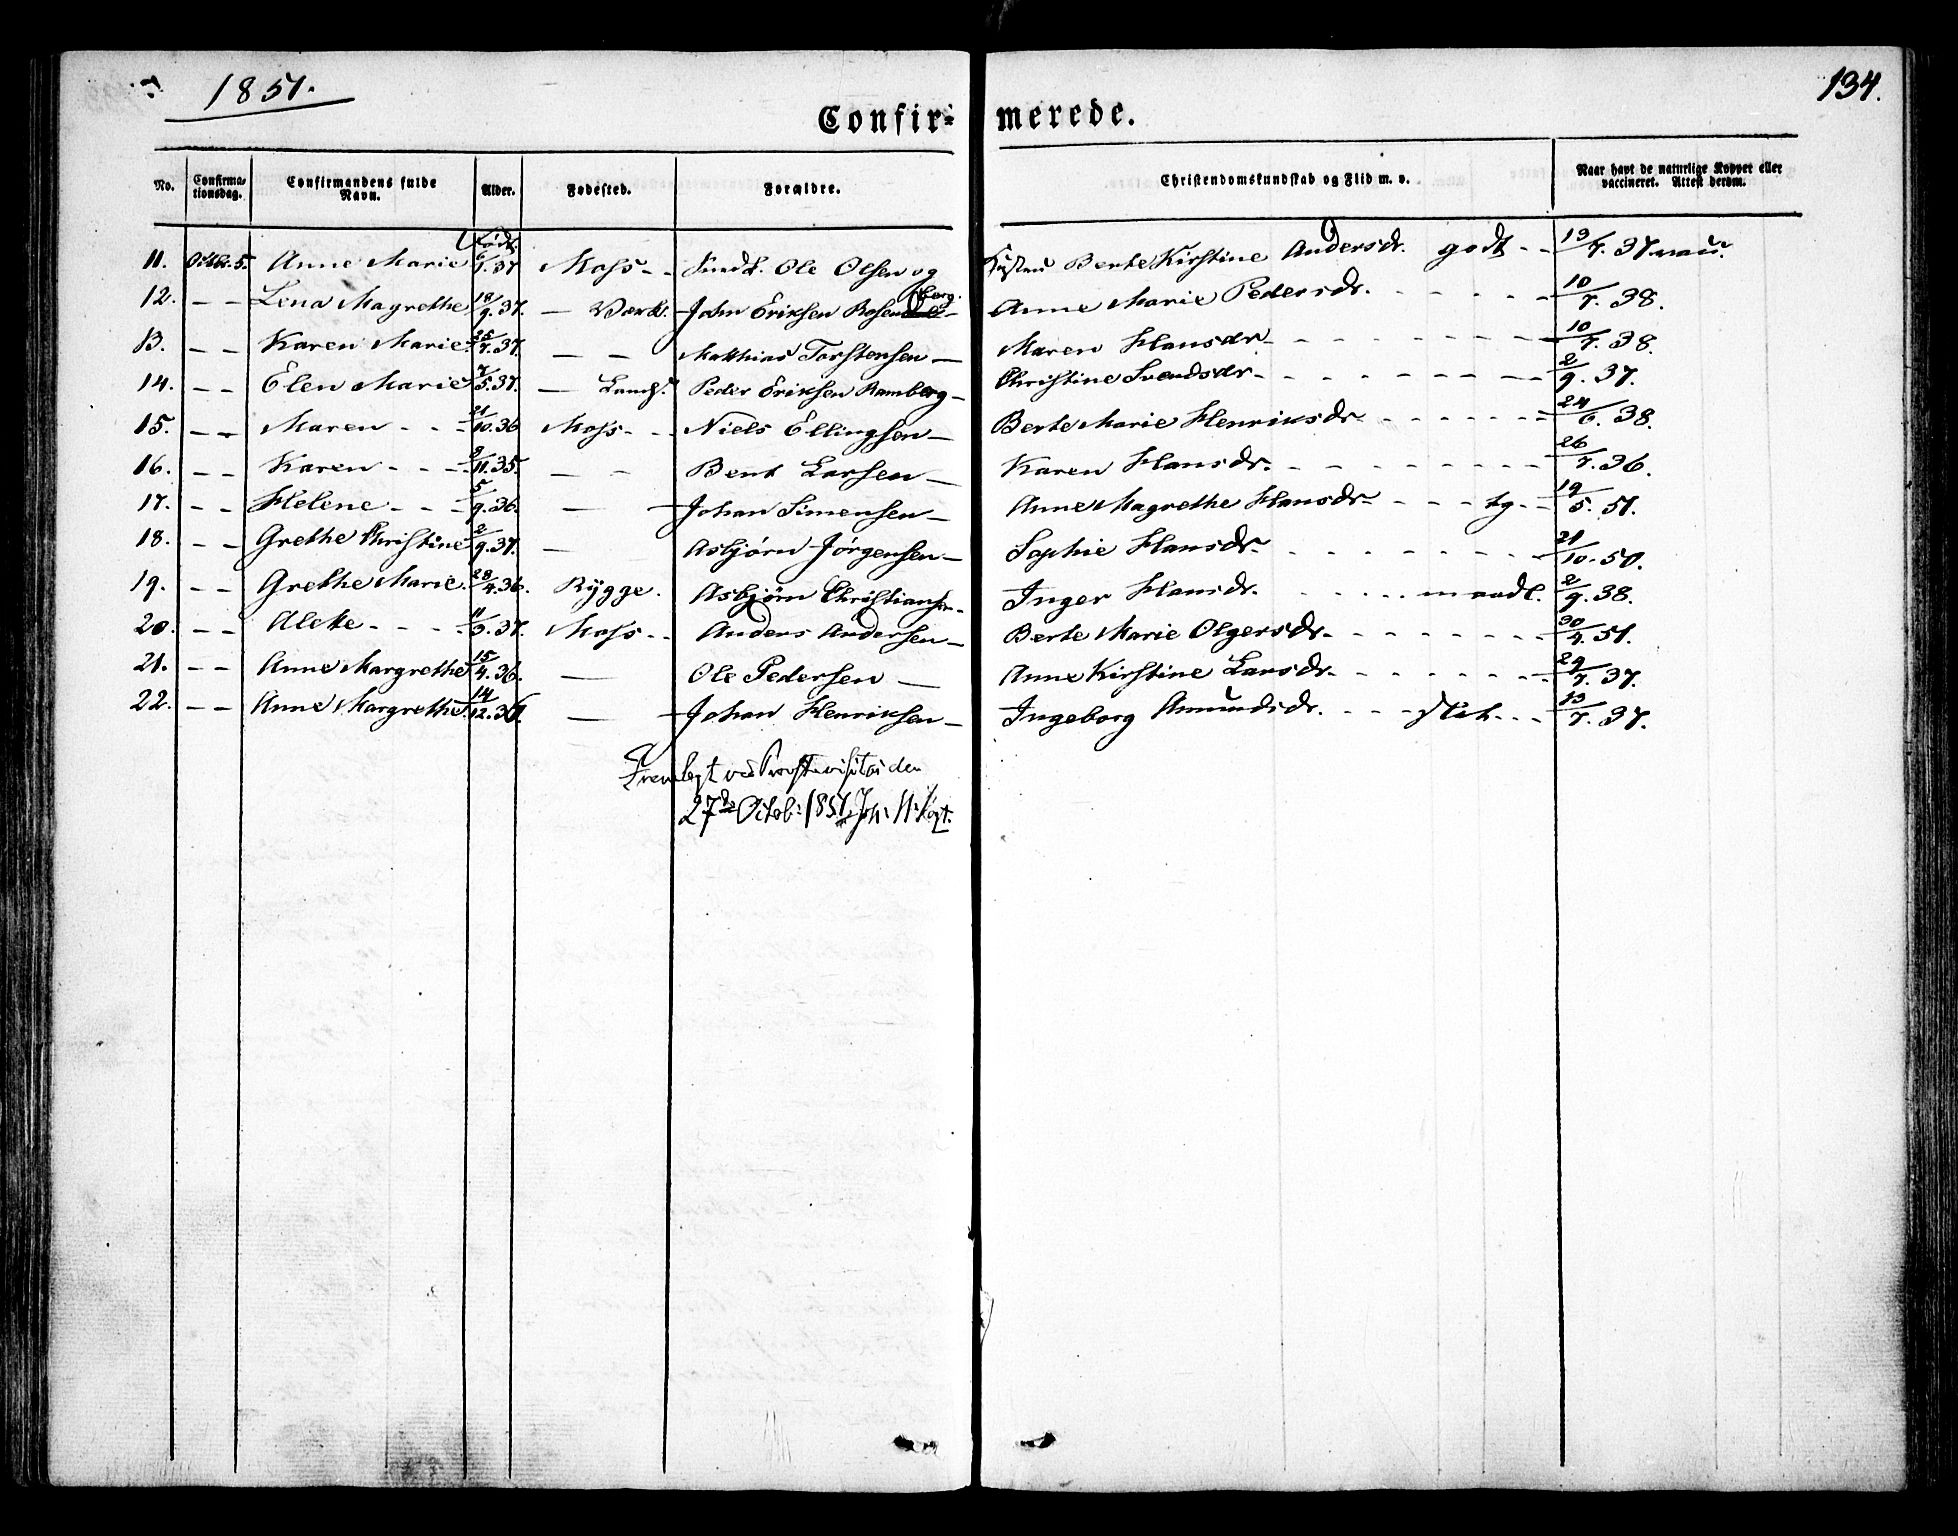 1851.
134.
Confir- merede.
No. Confirma-tionsdag. Confirmandens fulde Navn. Alder. Fødested. Forældre. Christendomskundskab og Flid m. v. Naar havt de naturlige Kopper eller vaccineret. Attest derom.
Född.
11. Octbr. 5. Anne Marie 6/7.37 Moss - - Smdk. Ole Olsen og Kusten Berte Kirstine Andersdr. godt - - 13/7.37 nat.
12. - - Lena Magrethe 18/9.37. — Værk. John Eriksen Rosenberg - Anne Marie Pedersdr. - - - - - 10/7.38.
13. - - Karen Marie 25/7.37. — — Matthias Torstensen — Maren Hansdr - - - - - - 10/7.38.
14. - - Elen Marie 7/5.37. — Lands. Peder Eriksen Ramberg - Christine Svendsdr - - - - - - 2/9.37.
15. - - Maren - - - 21/10.36 Moss - - Niels Ellingsen — Berte Marie Henriksdr - - - - - 24/6.38.
16. - - Karen - - - 2/11.35. — — Bent Larsen — Karen Hansdr. - - - - - - 26/7.36.
17. - - Helene - - - 5/9.36. — Johan Simensen — Anne Magrethe Hansdr - - - - tg - - 19/5.51.
18. - - Grethe Christine 2/9.37. — Asbjørn Jørgensen — Sophie Hansdr. - - - - - - 21/10.50.
19. - - Grethe Marie. 28/4.36. Rygge. Asbjørn Christiansen - Inger Hansdr. - - - - - maadl. 2/9.38.
20. - - Alette - - - - 11/3.37. Moss - - Anders Andersen — Berte Marie Olgersdr - - - - - - 30/4.51.
21. - - Anne Margrethe 15/4.36. — Ole Pedersen — Anne Kirstine Larsdr - - - - - - 29/7.37.
22. - - Anne Margrethe. 14/12.36. — Johan Henriksen — Ingeborg Amundsdr. - - - slet - - - 13/7.37.
Fremlagt ved Provstevisitas den
27de Octob: 1851. Joh: N: Vogt.